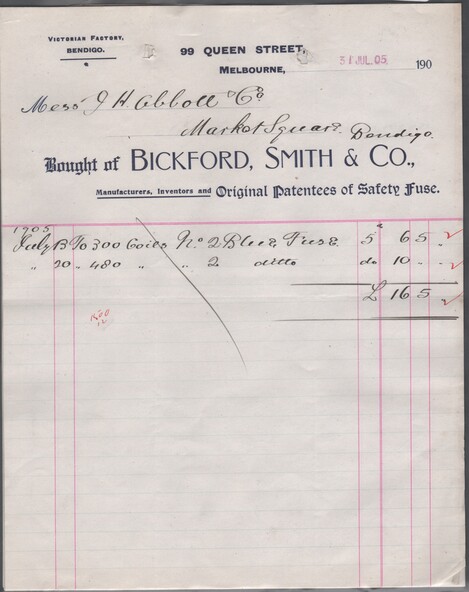 VICTORIAN FACTORY,
BENDIGO.
99 QUEEN STREET,
MELBOURNE, 31 JUL. 05 190
Mess J H Abbott & Co
Market Square Bendigo
Bought of BICKFORD, SMITH & CO.,
Manufacturers, Inventors and Original Patentees of Safety Fuse.
1905
July 13 To 300 Coils No 2 Blue Fuse 5 6 5 -
" 20 " 480 " " 2 ditto do 10 - -
£ 16 5 -